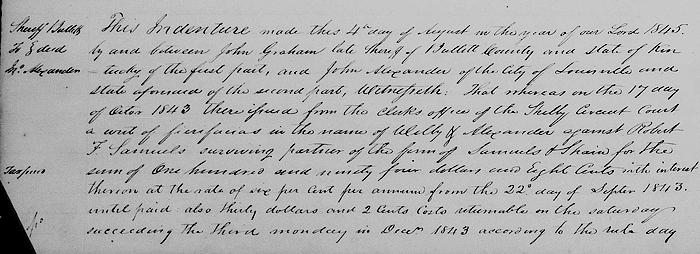 Sheriff Bullitt
To } deed
Jno. Alexander
This Indenture made this 4th day of August in the year of our Lord 1845.
by and between John Graham late Sheriff of Bullitt County and State of Ken
-tucky of the first part, and John Alexander of the City of Louisville and
State aforesaid of the second part, Witnesseth: That whereas on the 17 day
of Octor 1843 there issued from the clerks office of the Shelby Circuit Court
a writ of fierifacias in the name of & Alexander against Robert
F Samuels surviving partner of the firm of Samuels & Shain for the
sum of One hundred and ninety four dollars and Eight Cents with interest
thereon at the rate of six per cent per annum from the 22d day of Septer 1843.
until paid: also thirty dollars and 2 Cents Costs returnable on the saturday
succeeding the third monday in Decr 1843 according to the rule day